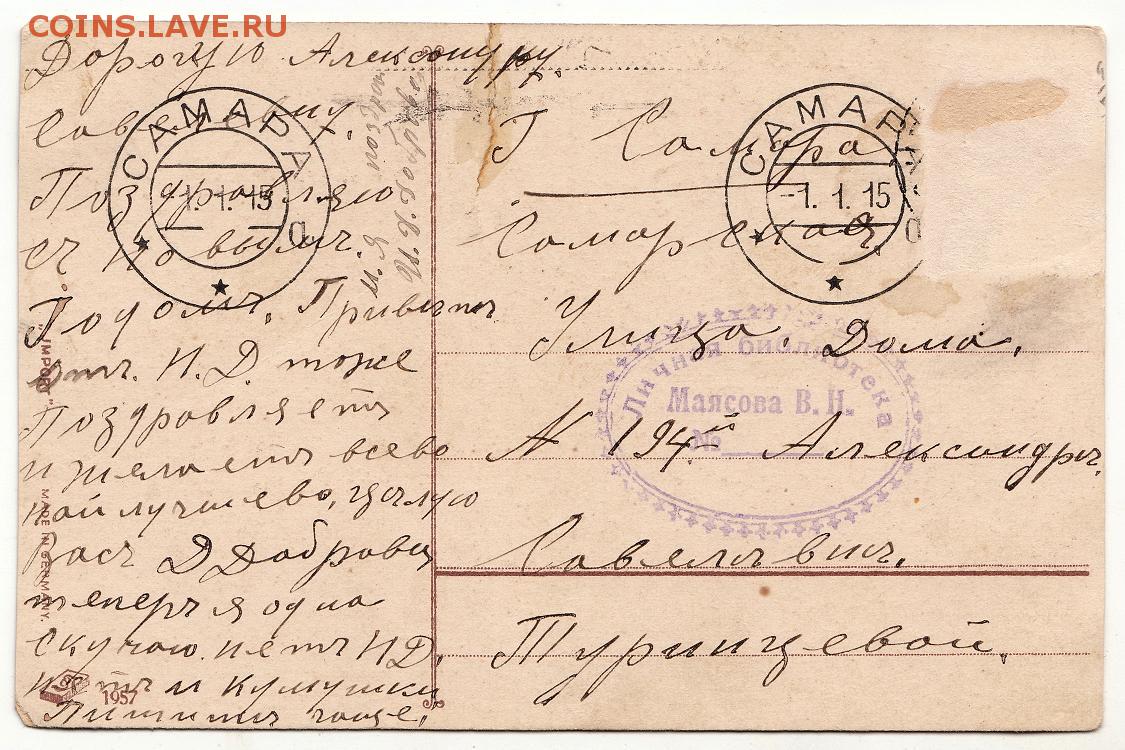 COINS.LAVE.RU
Дорогую Александру
Савельвну.
Поздровляю
съ Новымъ.
Годомъ. Приветъ
отъ. Н. Д. тоже
Поздровляетъ
и желаетъ всево
найлучшево, цалую
Васъ Д Добровац
теперъ я одна
скучаю. нетъ Н Д.
и кумушки
Пишитъ чаще.
САМАРА
-1. 1. 15
САМАРА
-1. 1. 15
Г. Самара
Самарская.
Улица. Дома.
N 194й Александръ.
Савелъвнъ.
Туринцевой.
Личная библиотека
Маясова В. Н.
№
"IMPORT"
MADE IN GERMANY.
1957